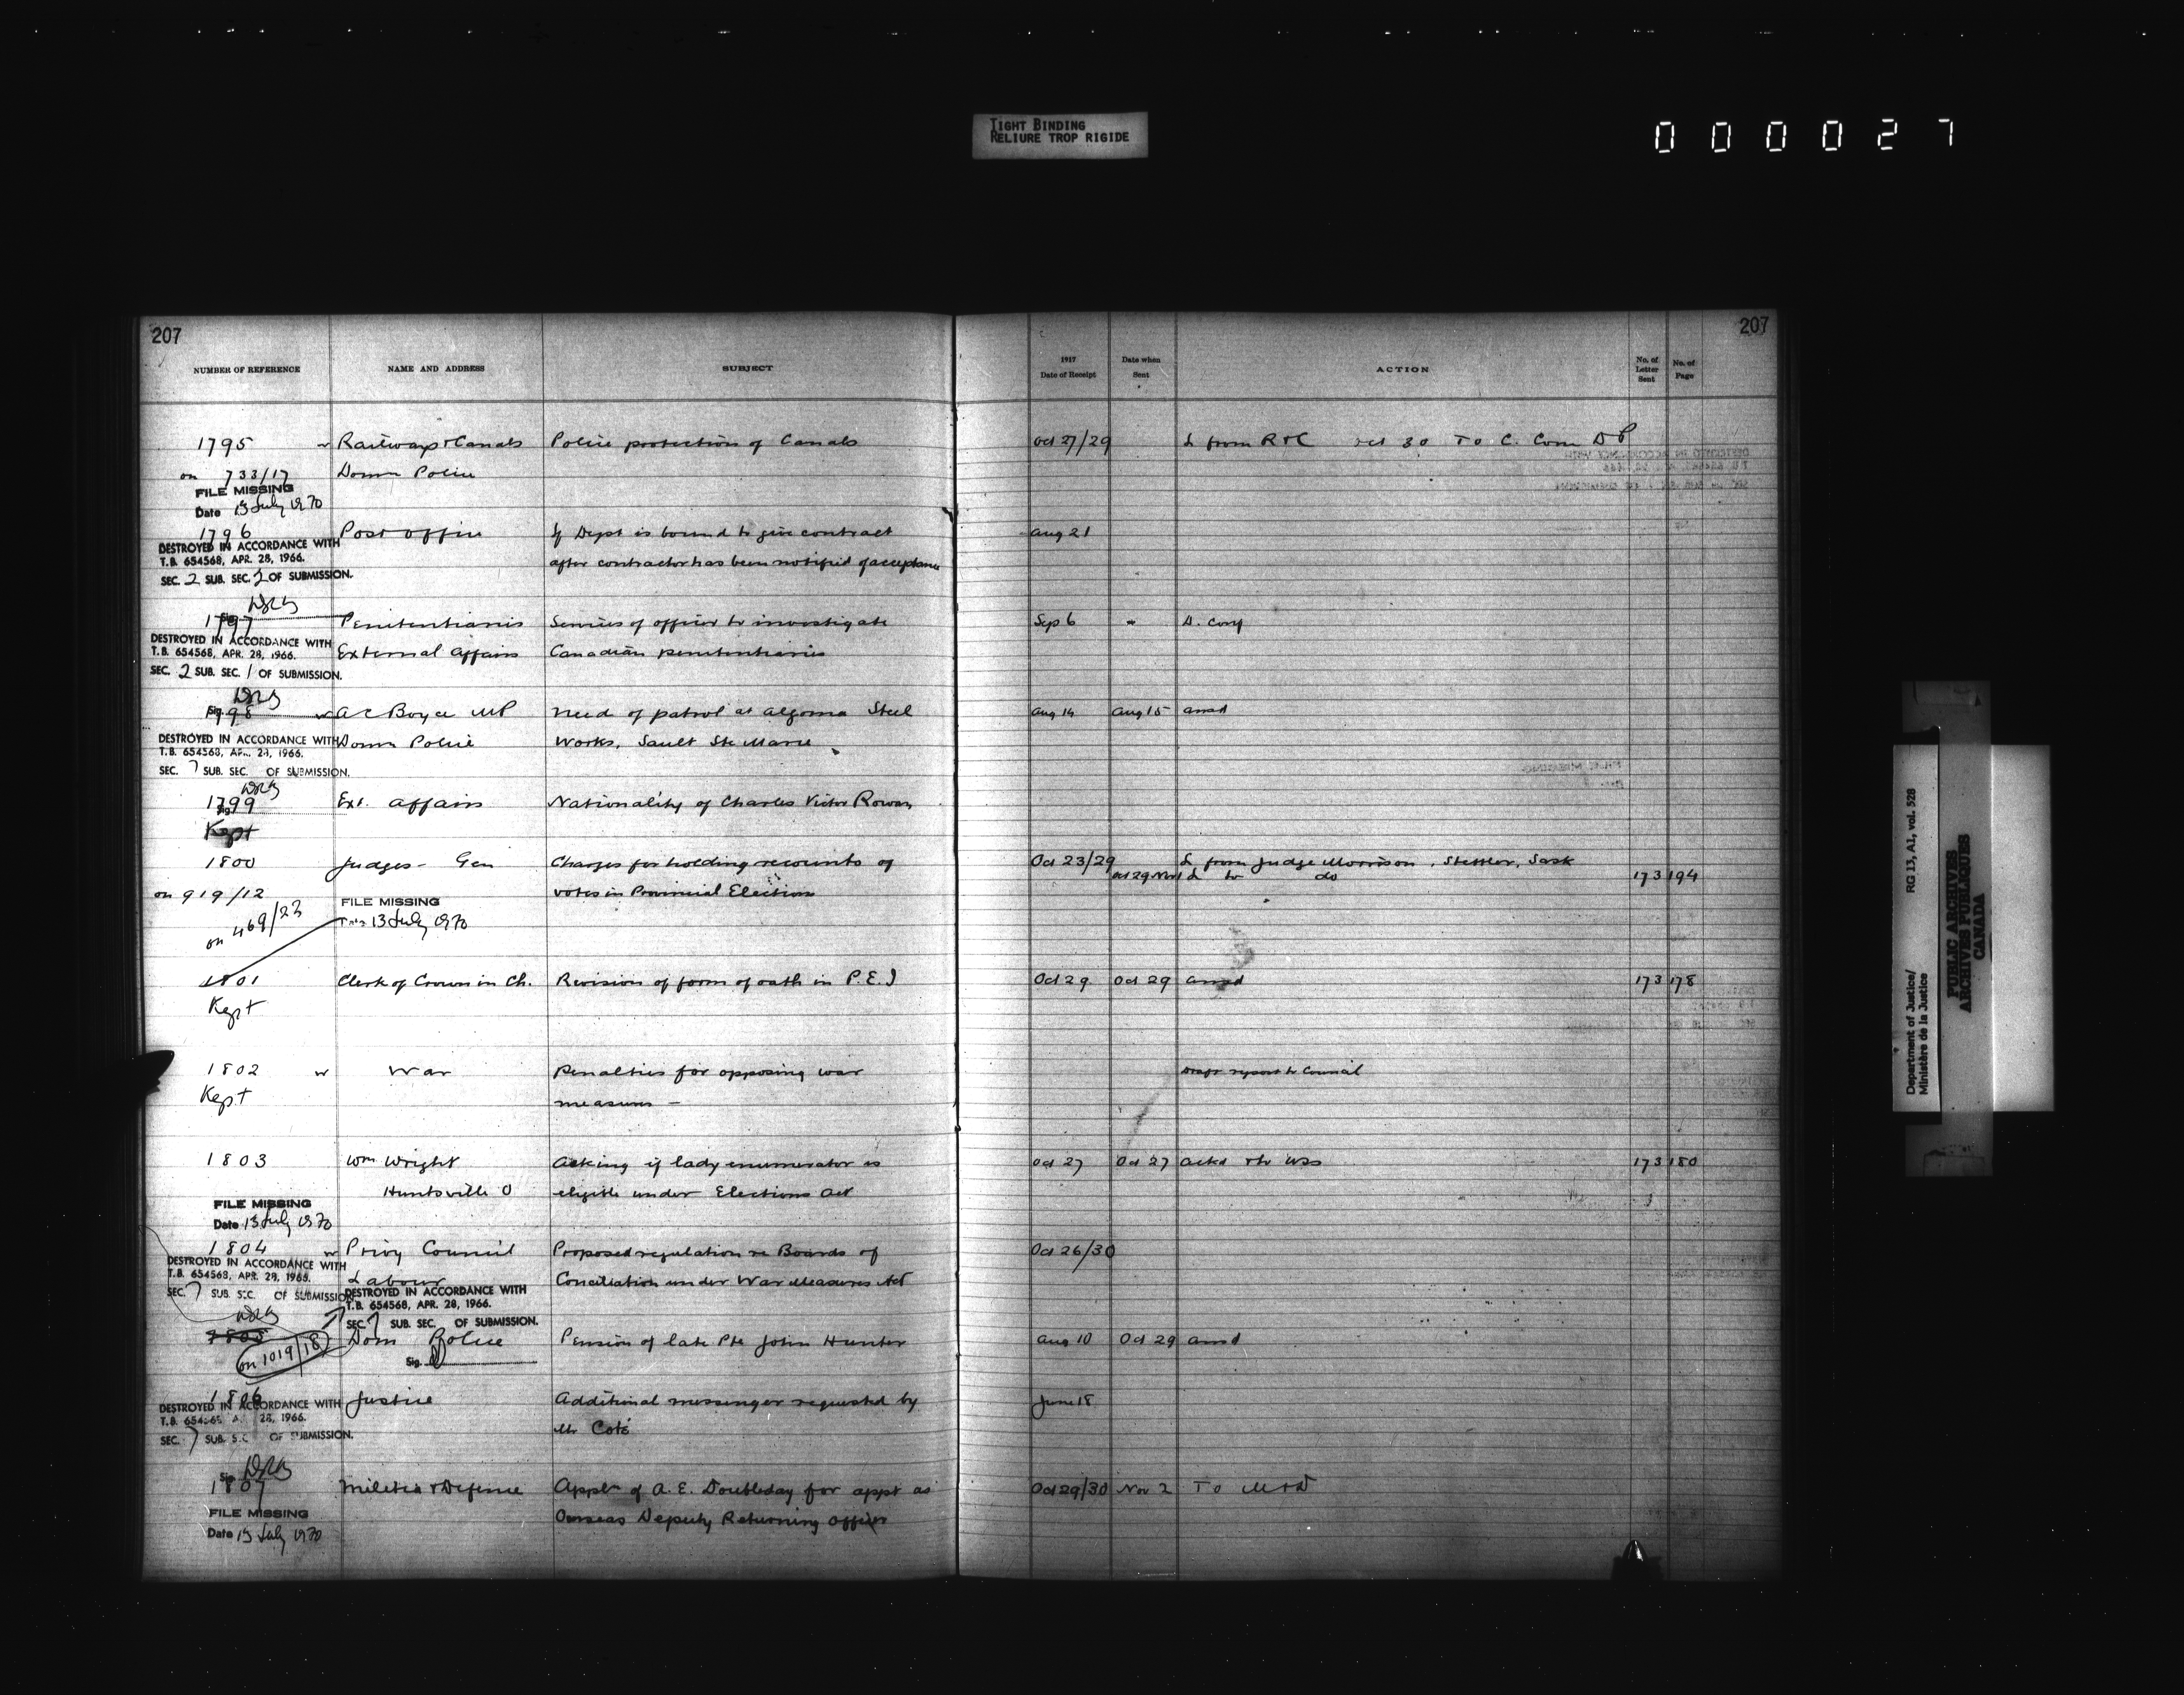 TIGHT BINDING
RELIURE TROP RIGIDE
000027
207
207
NUMBER OF REFERENCE NAME AND ADDRESS SUBJECT 1917 Date of Receipt Date when Sent ACTION No. of Letter Sent No. of Page
1795 Railways & Canals Police protection of Canals Oct 27/29 L from R & C Oct 30 To C. Com D P
on 733/17 Domn Police
FILE MISSING
Date 13 July 1970
1796 Post Office If Dept is bound to give contract Aug 21
DESTROYED IN ACCORDANCE WITH
T.B. 654568, APR. 28, 1966. after contractor has been notified of acceptance
SEC. 2 SUB. SEC. 2 OF SUBMISSION.
Sig.
1797 Penitentiaries Services of officer to investigate Sep 6 " D. Conf
DESTROYED IN ACCORDANCE WITH
T.B. 654568, APR. 28, 1966. External Affairs Canadian penitentiaries
SEC. 2 SUB. SEC. 1 OF SUBMISSION.
Sig.
1798 A C Boyce MP Need of patrol at Algoma Steel Aug 14 Aug 15 ansd
DESTROYED IN ACCORDANCE WITH Domn Police Works, Sault Ste Marie
T.B. 654568, APR. 28, 1966.
SEC. 7 SUB. SEC. OF SUBMISSION.
Sig.
1799 Ext. Affairs Nationality of Charles Victor Rowan
Kept
1800 Judges - Gen Charges for holding recounts of Oct 23/29 L from Judge Morrison, Stettler, Sask
Oct 29 Nov 1 L to do 173 194
on 919/12 votes in Provincial Election
on 469/23 FILE MISSING
13 July 1970
1801 Clerk of Crown in Ch. Revision of form of oath in P.E.I Oct 29 Oct 29 ansd 173 178
Kept
1802 War Penalties for opposing war Draft report to Council
Kept measures -
1803 Wm Wright Asking if lady enumerator is Oct 27 Oct 27 ackd 173 180
Huntsville O eligible under Elections Act
FILE MISSING
Date 13 July 1970
1804 Privy Council Proposed regulation re Boards of Oct 26/30
DESTROYED IN ACCORDANCE WITH
T.B. 654568, APR. 28, 1966. Labour Conciliation under War Measures Act
SEC. 7 SUB. SEC. OF SUBMISSION.
DESTROYED IN ACCORDANCE WITH
T.B. 654568, APR. 28, 1966.
SEC. 7 SUB. SEC. OF SUBMISSION.
1805 Dom Police Pension of late Pte John Hunter Aug 10 Oct 29 ansd
on 1019/18 Sig.
1806 Justice Additional messenger requested by June 18
DESTROYED IN ACCORDANCE WITH
T.B. 654568 28, 1966. Mr Coté
SEC. 7 SUB. SEC OF SUBMISSION.
Sig.
1807 Militia & Defence Appln of A. E. Doubleday for appt as Oct 29/30 Nov 2 To M & D
FILE MISSING Overseas Deputy Returning Officer
Date 13 July 1970
Department of Justice/ RG 13, A1, vol. 528
Ministère de la Justice
PUBLIC ARCHIVES
ARCHIVES PUBLIQUES
CANADA